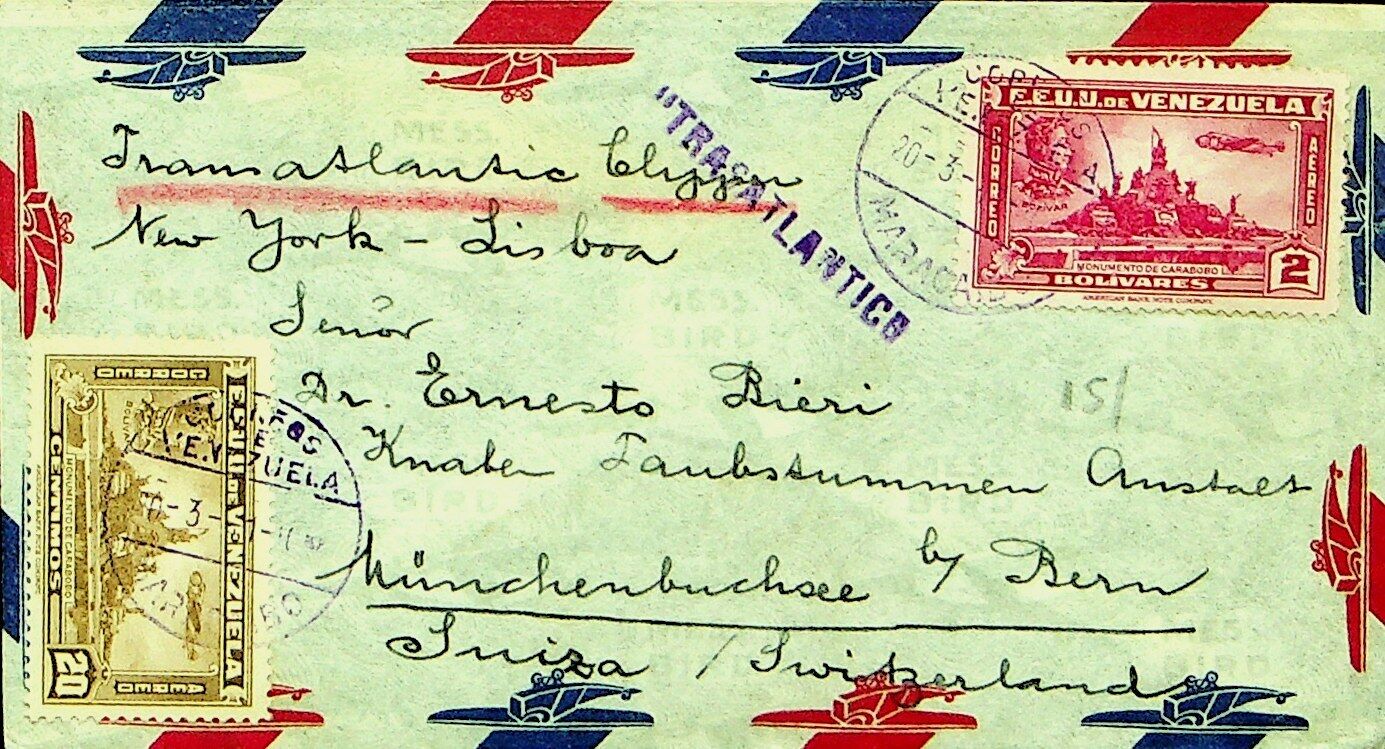 Transatlantic Clipper
New York - Lisboa
"TRASATLANTICO
Señor
Dr. Ernesto Bieri
Knaben Taubstummen Anstalt
Münchenbuchsee b/ Bern
Suiza / Switzerland
15/
E.E.U.U. DE VENEZUELA
CORREO
AEREO
BOLIVAR
MONUMENTO DE CARABOBO
2
BOLÍVARES
AMERICAN BANK NOTE COMPANY
VENEZUELA
20-3-
MARACAIBO
E.E.U.U. DE VENEZUELA
CORREO
AEREO
MONUMENTO DE CARABOBO
CENTIMOS
20
CORREOS
VENEZUELA
-3-
MARACAIBO